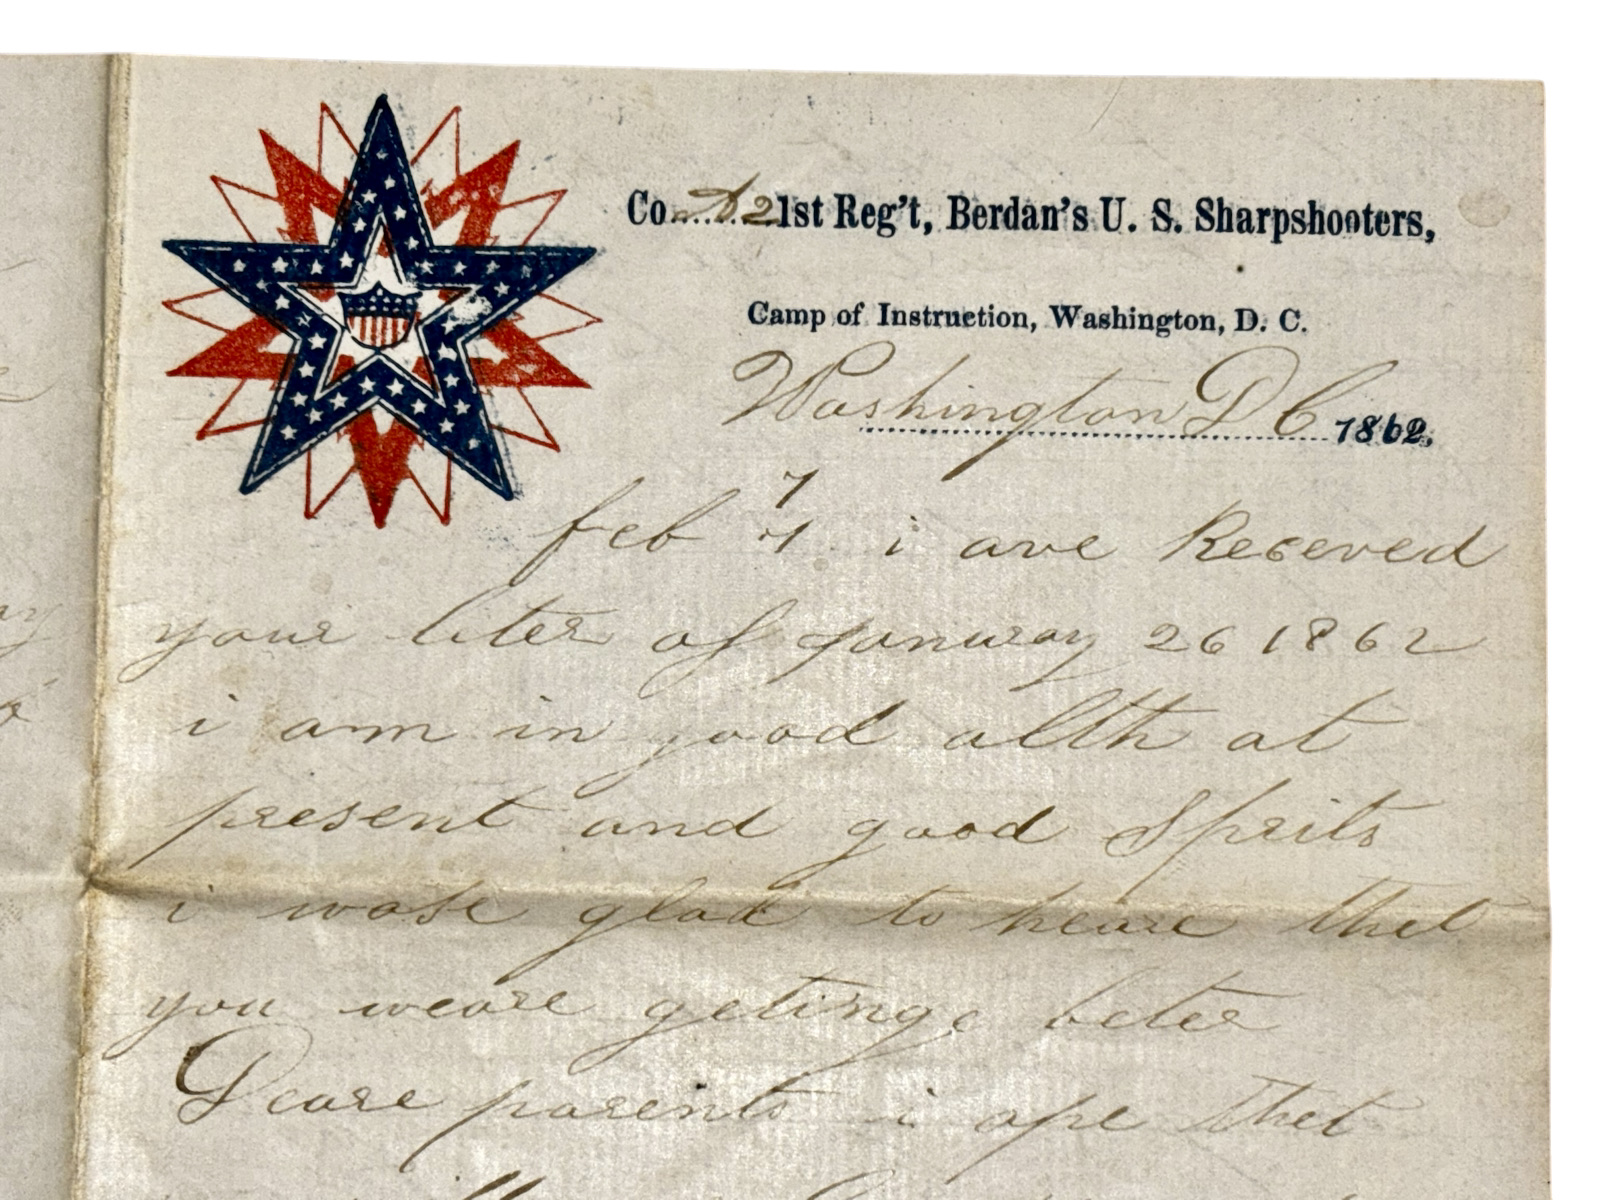 Co. A 21st Reg't, Berdan's U. S. Sharpshooters,
Camp of Instruction, Washington, D. C.
Washington D C 1862.
7
feb i ave Receved
your liter of January 26 1862
i am in good alth at
present and good Sprits
i wase glad to heare thet
you weare getinge beter
Deare parents i ope thet